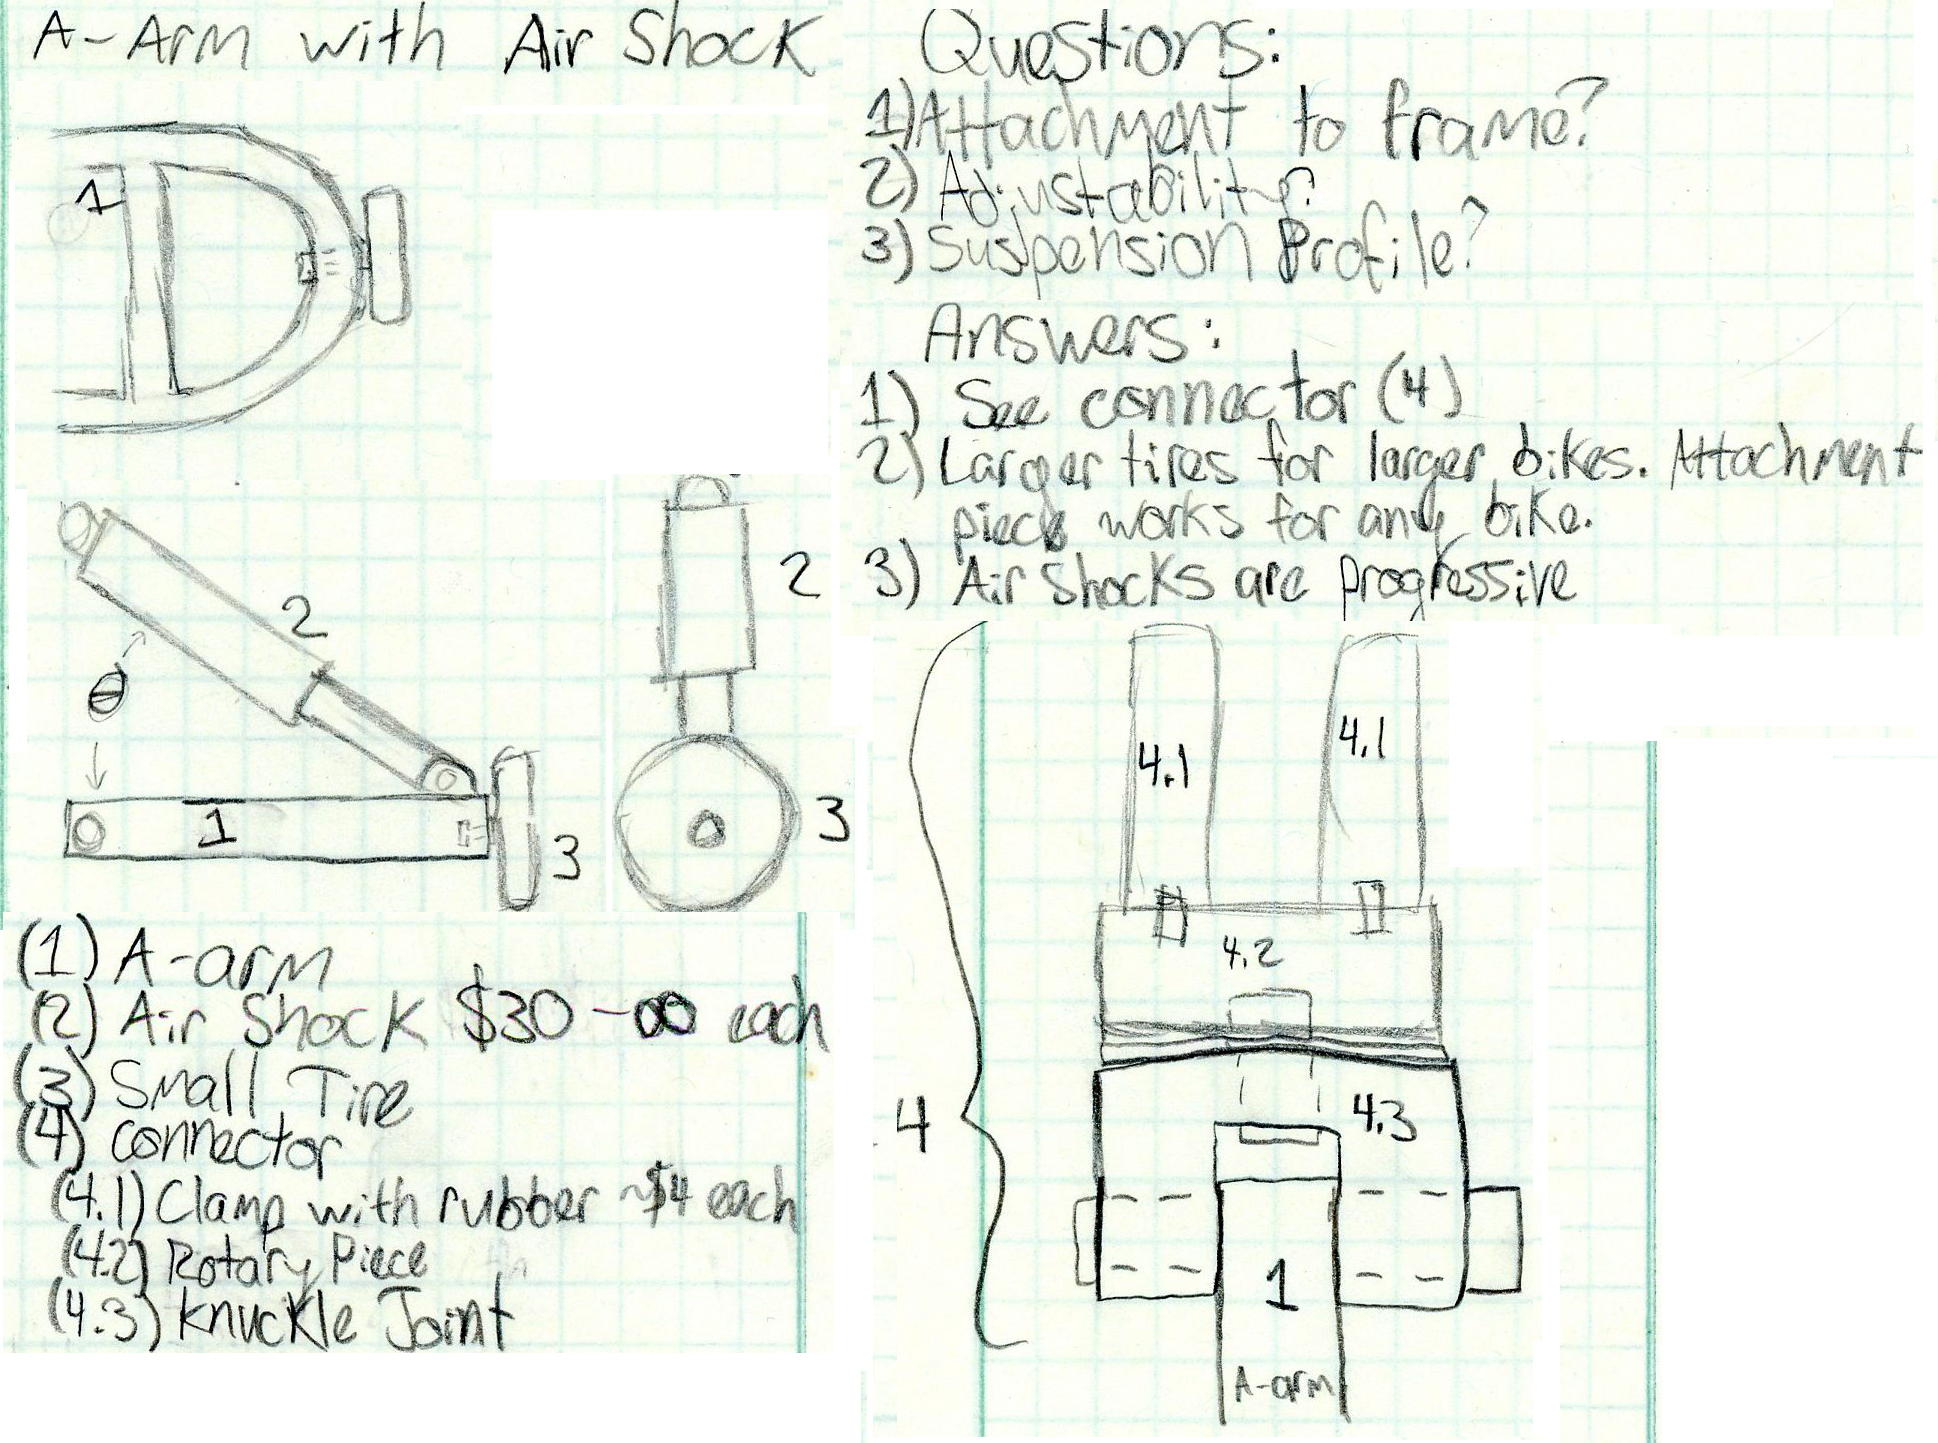 A-Arm with Air Shock
1
2
θ
1
3
2
3
(1) A-arm
(2) Air Shock $30-∞ each
(3) Small Tire
(4) connector
(4.1) Clamp with rubber ~$4 each
(4.2) Rotary Piece
(4.3) Knuckle Joint
Questions:
1) Attachment to frame?
2) Adjustability?
3) Suspension Profile?
Answers:
1) See connector (4)
2) Larger tires for larger bikes. Attachment
piece works for any bike.
3) Air Shocks are progressive
4.1
4.1
4.2
4
4.3
1
A-arm